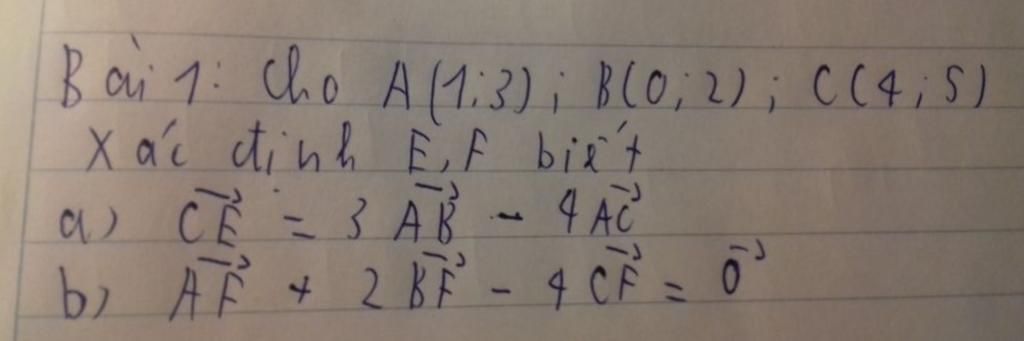 Bài 1: Cho A(1;3); B(0;2); C(4;5)
Xác định E, F biết
a) \overrightarrow{CE} = 3\overrightarrow{AB} - 4\overrightarrow{AC}
b) \overrightarrow{AF} + 2\overrightarrow{BF} - 4\overrightarrow{CF} = \overrightarrow{0}